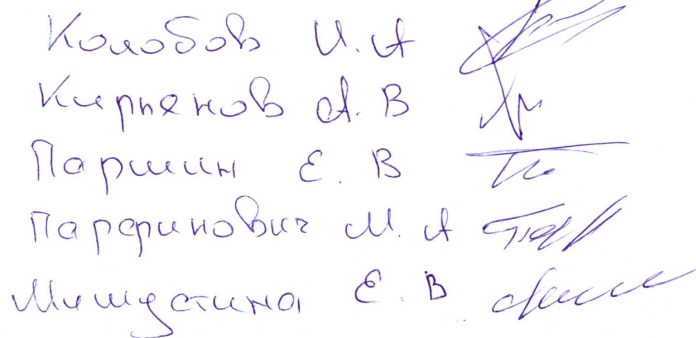 Колобов И. А
Кирпенов А. В
Паршин Е. В
Парфинович М. А
Мишустина Е. В